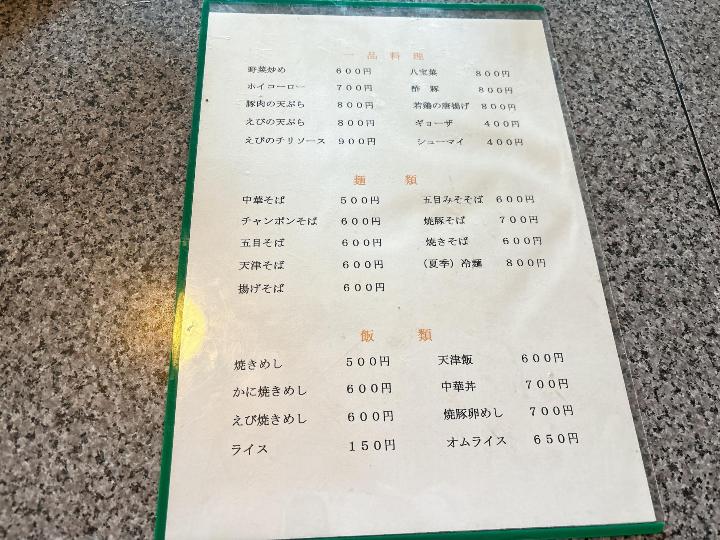 一品料理
野菜炒め ６００円 八宝菜 ８００円
ホイコーロー ７００円 酢　豚 ８００円
豚肉の天ぷら ８００円 若鶏の唐揚げ ８００円
えびの天ぷら ８００円 ギョーザ ４００円
えびのチリソース ９００円 シューマイ ４００円
麺　類
中華そば ５００円 五目みそそば ６００円
チャンポンそば ６００円 焼豚そば ７００円
五目そば ６００円 焼きそば ６００円
天津そば ６００円 （夏季）冷麺 ８００円
揚げそば ６００円
飯　類
焼きめし ５００円 天津飯 ６００円
かに焼きめし ６００円 中華丼 ７００円
えび焼きめし ６００円 焼豚卵めし ７００円
ライス １５０円 オムライス ６５０円